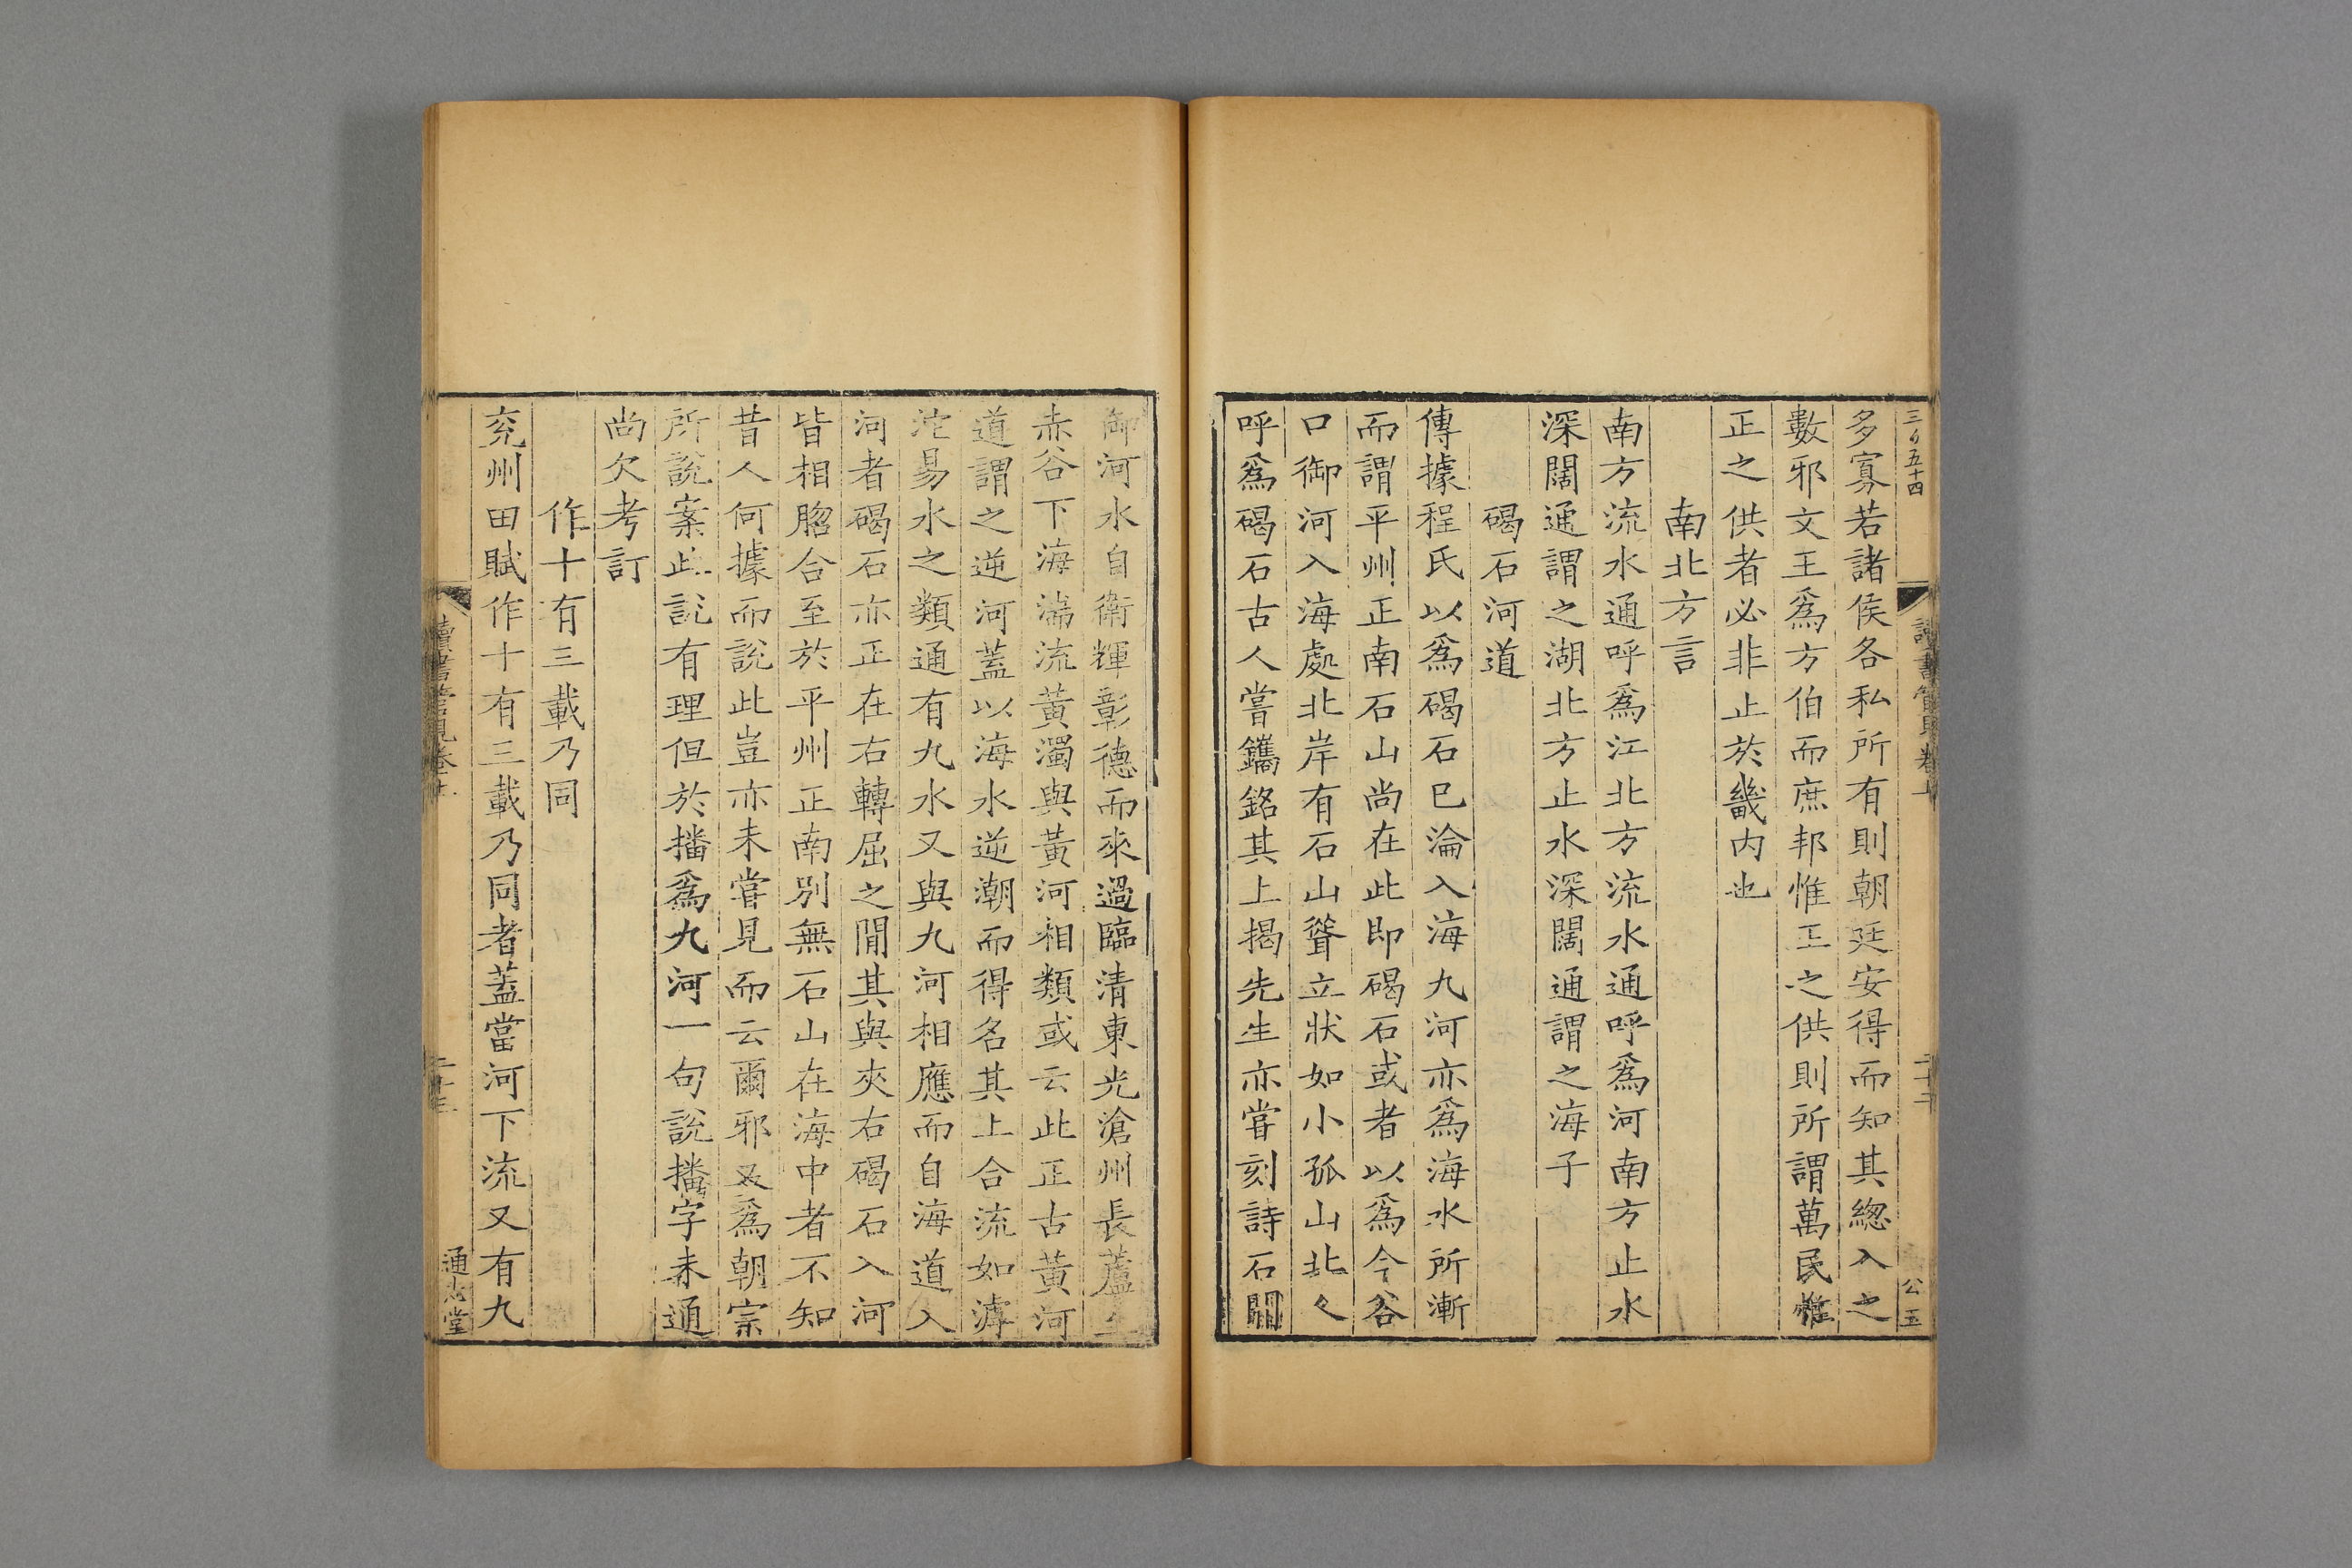 多寡若諸侯各私所有則朝廷安得而知其總入之
數邪文王爲方伯而庶邦惟正之供則所謂萬民惟
正之供者必非止於畿内也
南北方言
南方流水通呼爲江北方流水通呼爲河南方止水
深闊通謂之湖北方止水深闊通謂之海子
碣石河道
傳據程氏以爲碣石已淪入海九河亦爲海水所漸
而謂平州正南石山尚在此即碣石或者以爲今谷
口御河入海處北岸有石山聳立狀如小孤山北人
呼爲碣石古人嘗鑴銘其上揭先生亦嘗刻詩石關
御河水自衛輝彰德而來過臨清東光滄州長蘆至
赤谷下海湍流黃濁與黃河相類或云此正古黃河
道謂之逆河蓋以海水逆潮而得名其上合流如滹
沱易水之類通有九水又與九河相應而自海道入
河者碣石亦正在右轉屈之閒其與夾右碣石入河
皆相脗合至於平州正南別無石山在海中者不知
昔人何據而說此豈亦未嘗見而云爾邪又爲朝宗
所說案此說有理但於播爲九河一句說播字未通
尚欠考訂
作十有三載乃同
兖州田賦作十有三載乃同者蓋當河下流又有九
讀書管見卷上
通志堂